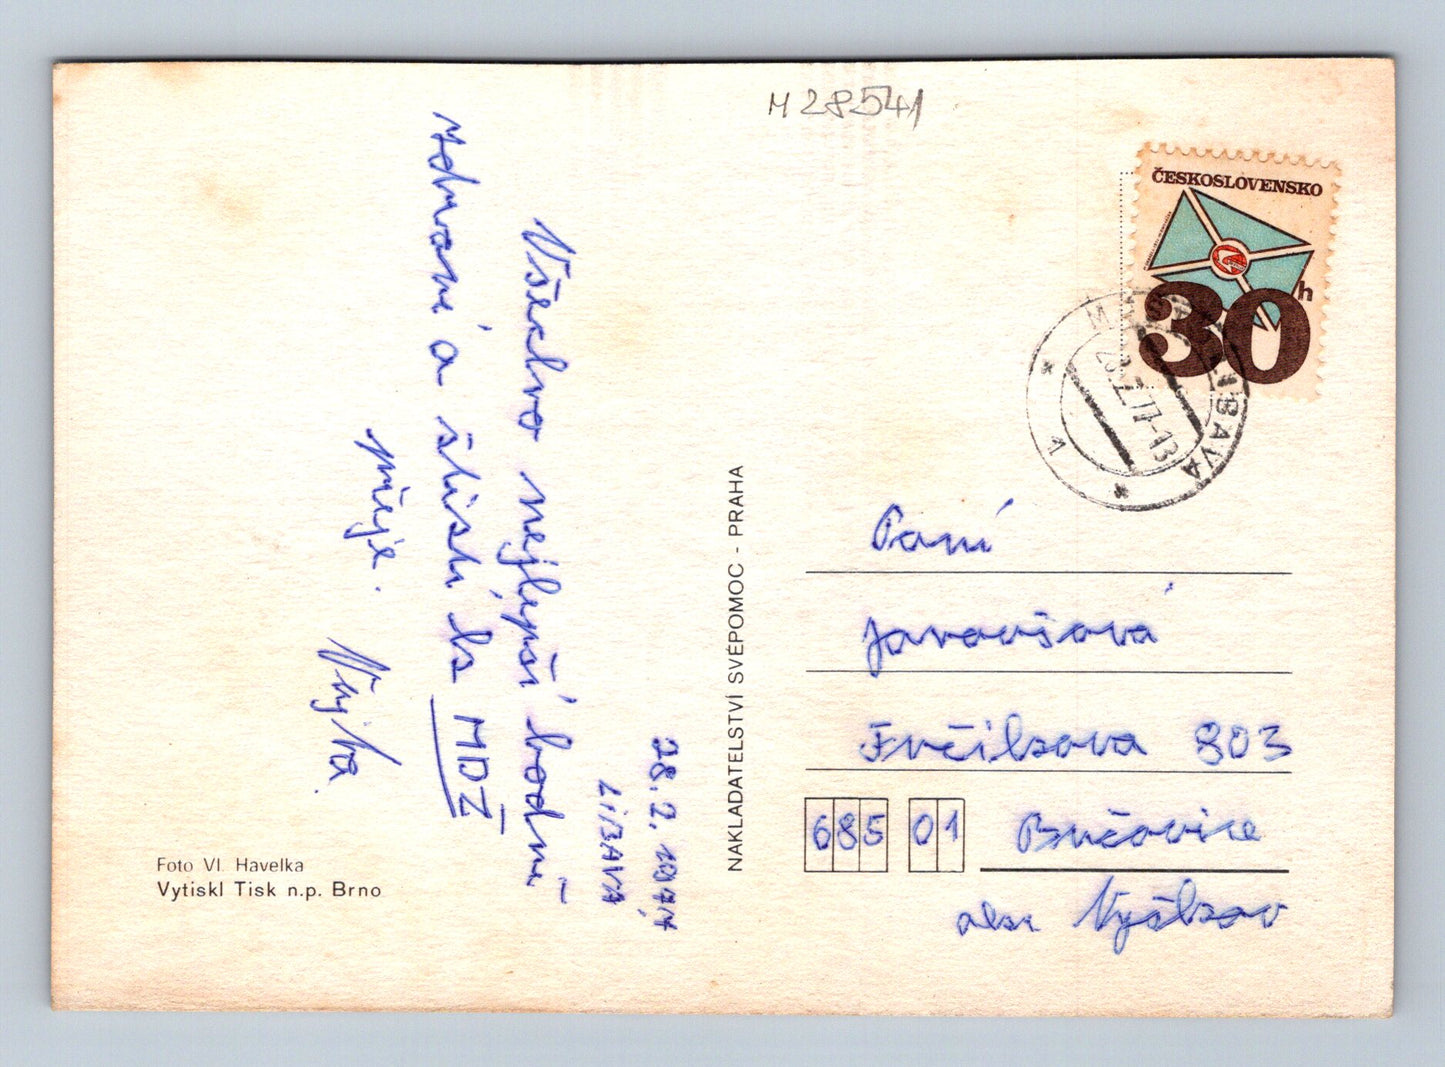 M 28541
ČESKOSLOVENSKO
30 h
28.2.77-13
28. 2. 1977
LIBAVÁ
Všechno nejlepší hodně
zdraví a štěstí k MDŽ
přeje.
NAKLADATELSTVÍ SVÉPOMOC - PRAHA
Paní
Jaroušová
Fučíkova 803
685 01 Bučovice
okr. Vyškov
Foto Vl. Havelka
Vytiskl Tisk n.p. Brno